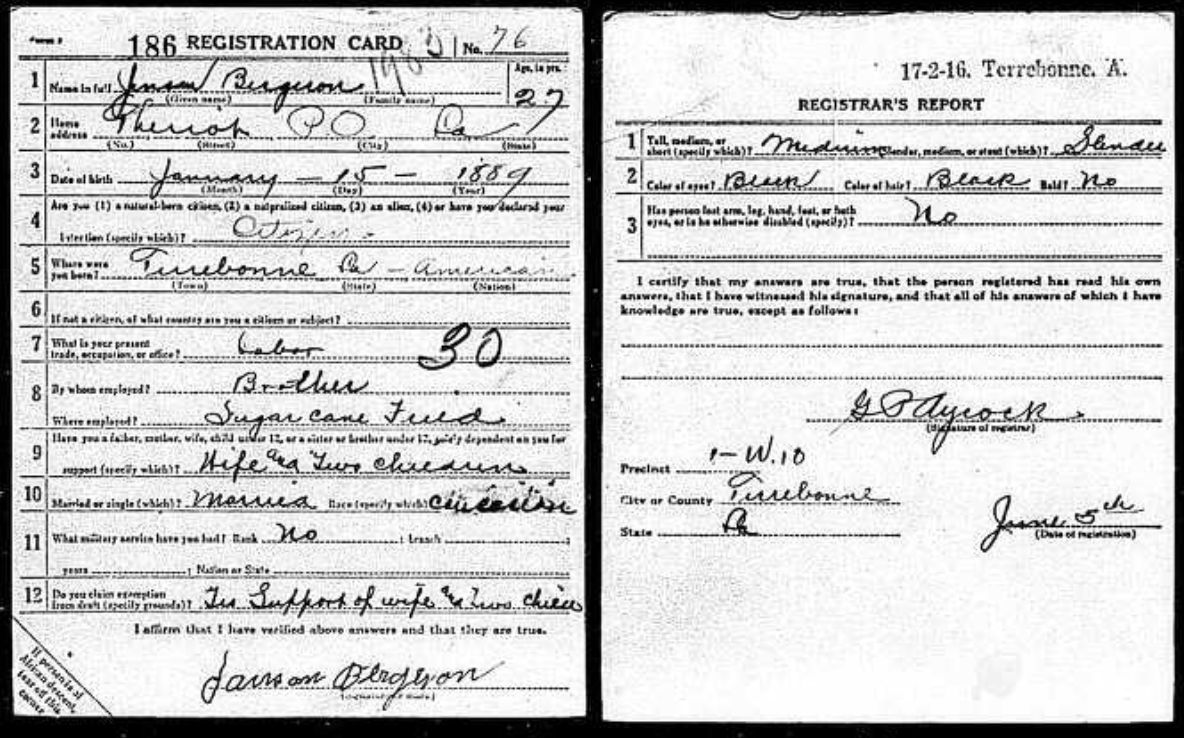 186 REGISTRATION CARD No. 76
1 Name in full Janson Bergeron Age, in yrs. 27
(Given name) (Family name)
2 Home address Theriot P.O. La
(No.) (Street) (City) (State)
3 Date of birth January - 15 - 1889
(Month) (Day) (Year)
4 Are you (1) a natural-born citizen, (2) a naturalized citizen, (3) an alien, (4) or have you declared your
intention (specify which)? Citizen
5 Where were you born? Terrebonne La - American
(Town) (State) (Nation)
6 If not a citizen, of what country are you a citizen or subject?
7 What is your present trade, occupation, or office? Labor 30
8 By whom employed? Brother
Where employed? Sugar cane Field
9 Have you a father, mother, wife, child under 12, or a sister or brother under 12, solely dependent on you for
support (specify which)? Wife and Two children
10 Married or single (which)? Married Race (specify which)? Caucasian
11 What military service have you had? Rank No ; branch ;
years ; Nation or State
12 Do you claim exemption from draft (specify grounds)? Support of wife and Two
I affirm that I have verified above answers and that they are true.
Janson Bergeron
If person is of African descent, tear off this corner
17-2-16. Terrebonne. A.
REGISTRAR'S REPORT
1 Tall, medium, or short (specify which)? Medium Slender, medium, or stout (which)? Slender
2 Color of eyes? Black Color of hair? Black Bald? No
3 Has person lost arm, leg, hand, foot, or both eyes, or is he otherwise disabled (specify)? No
I certify that my answers are true, that the person registered has read his own
answers, that I have witnessed his signature, and that all of his answers of which I have
knowledge are true, except as follows:
G P Aycock
(Signature of registrar)
Precinct 1-W.10
City or County Terrebonne
State La
June 5th
(Date of registration)